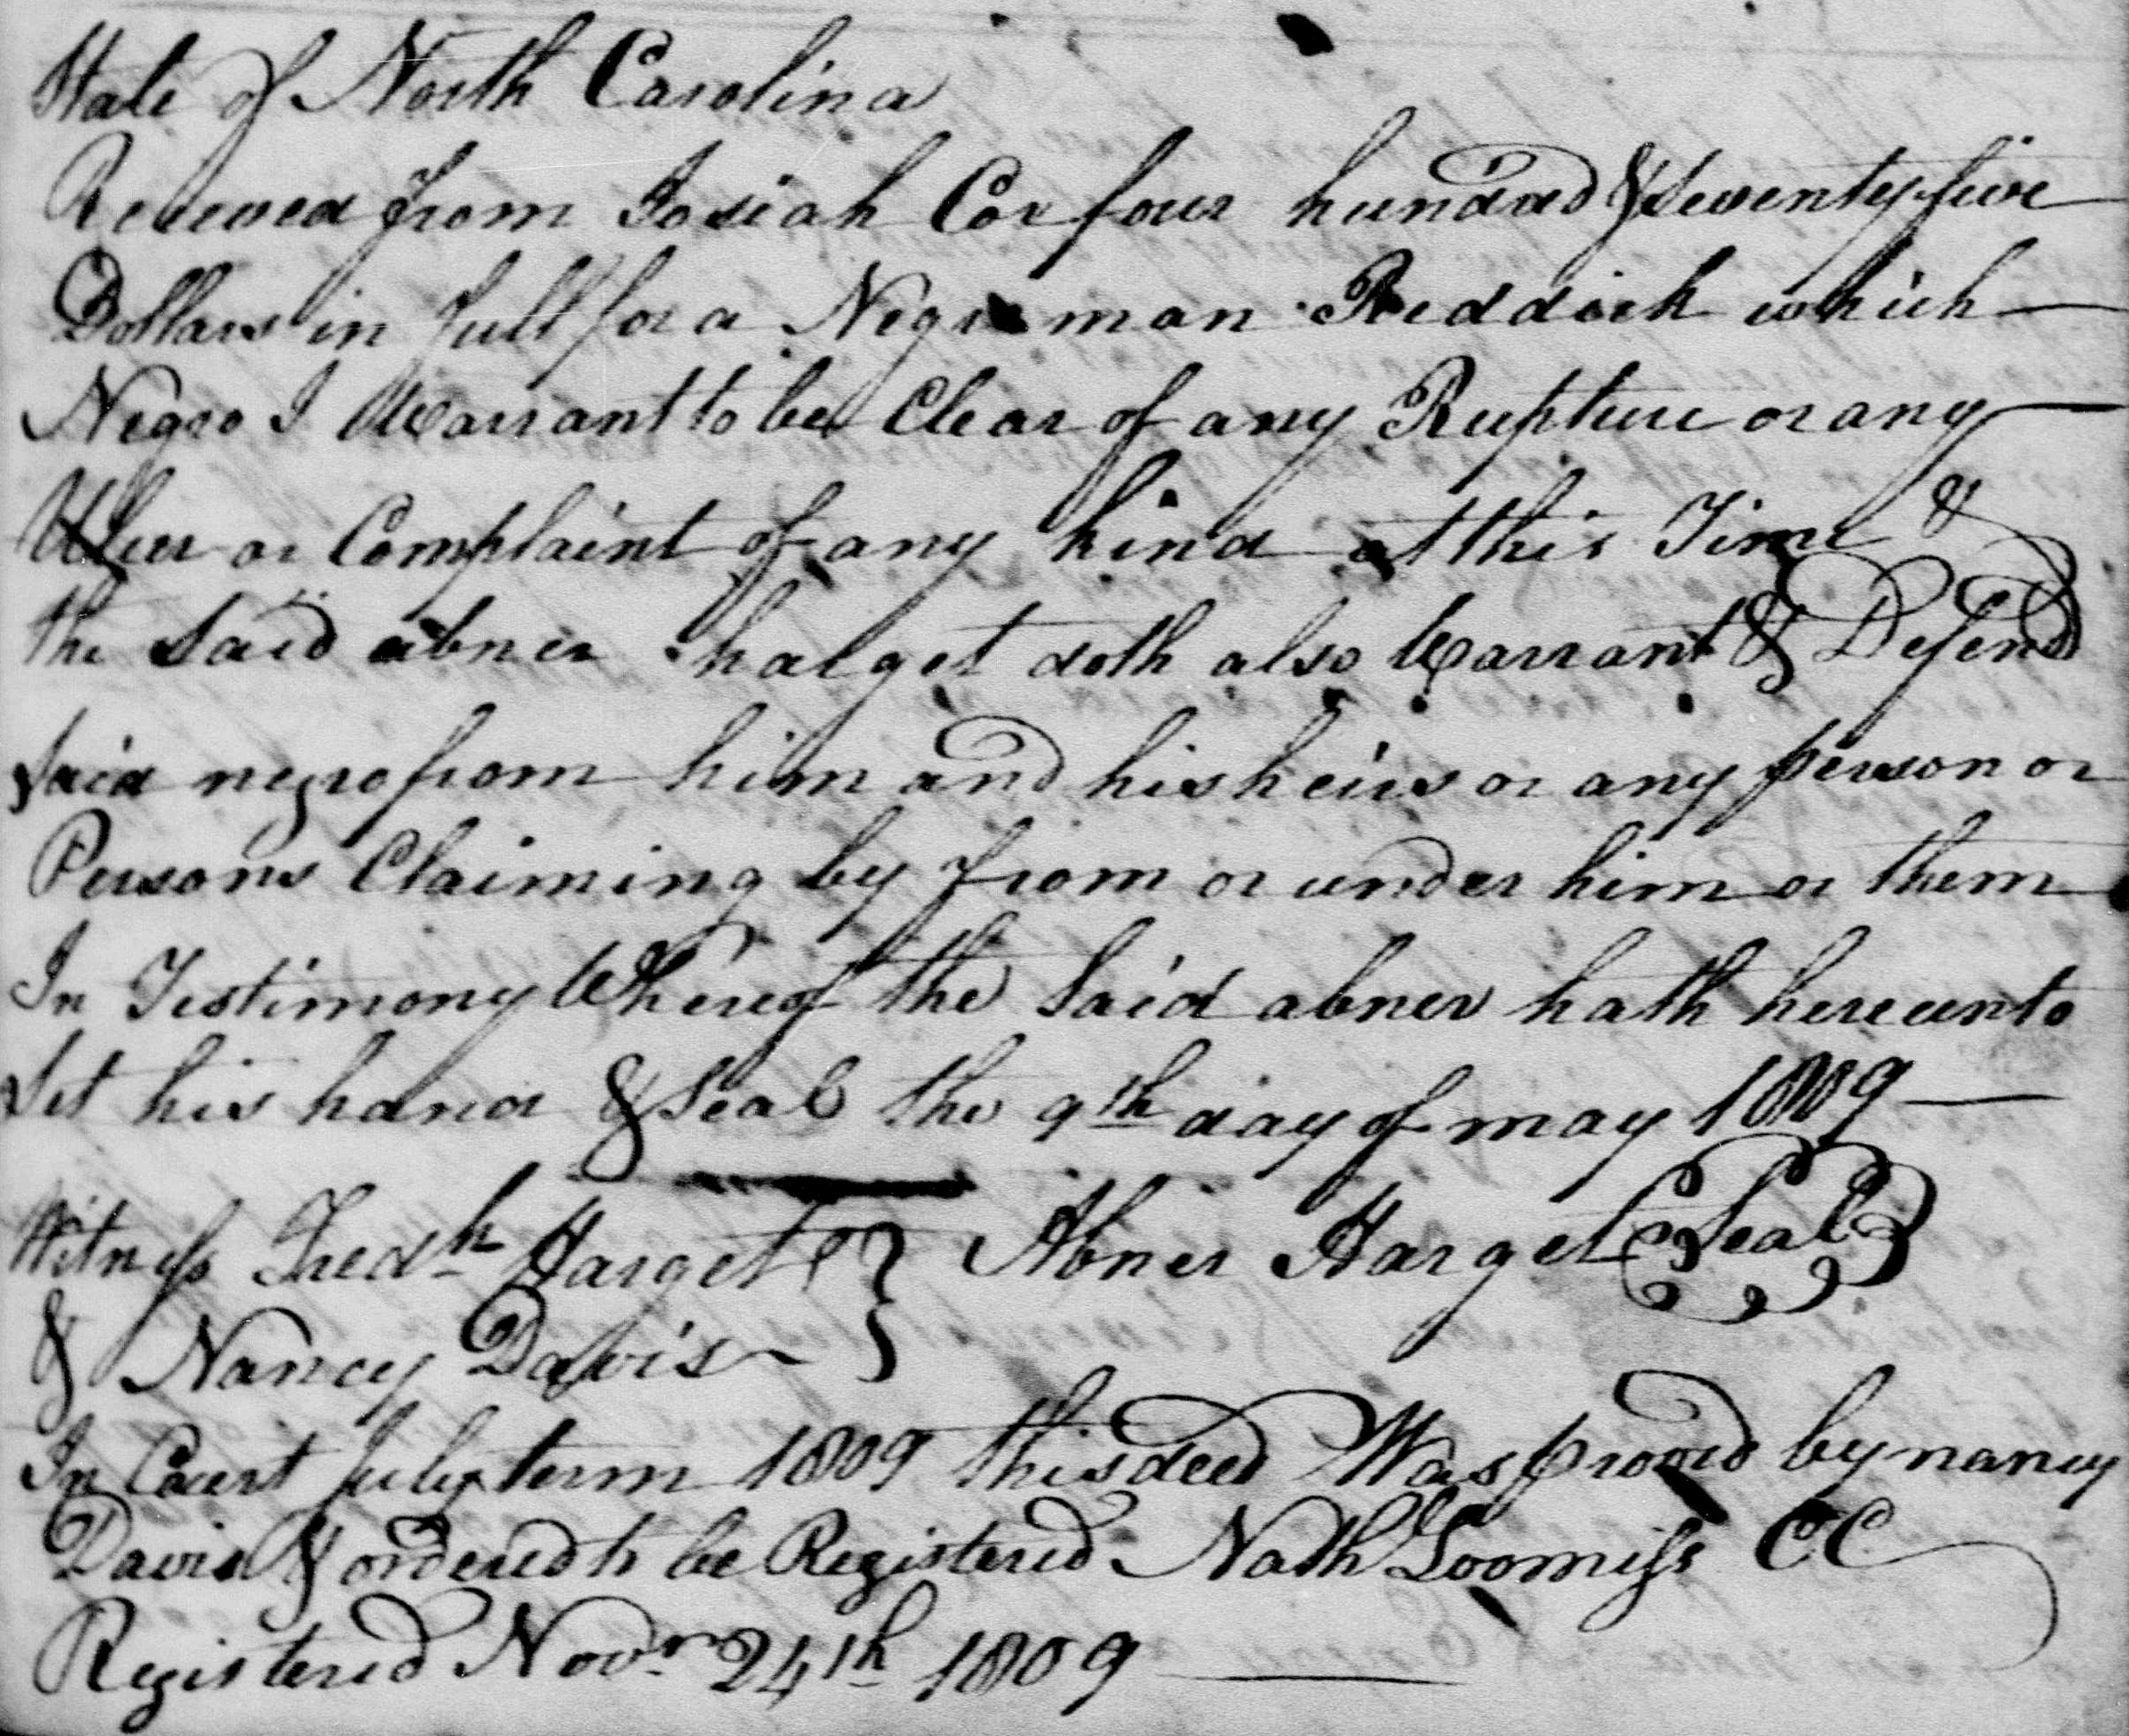 State of North Carolina
Received from Josiah Cox four hundred & Seventy five
Dollars in full for a Negro man Reddick which
Negro I Warrant to be Clear of any Rupture or any
Ulcer or Complaint of any kind at this Time &
the said abner harget doth also Warrant & Defend
said negro from him and his heirs or any person or
Persons Claiming by from or under him or them
In Testimony Whereof the said abner hath hereunto
Set his hand & Seal the 9th day of may 1809
Witness Fredk Harget } Abner Harget Seal
& Nancy Davis
In Court July term 1809 this deed Was proved by nancy
Davis & ordered to be Registered Nath Loomiss CC
Registered Novr 24th 1809